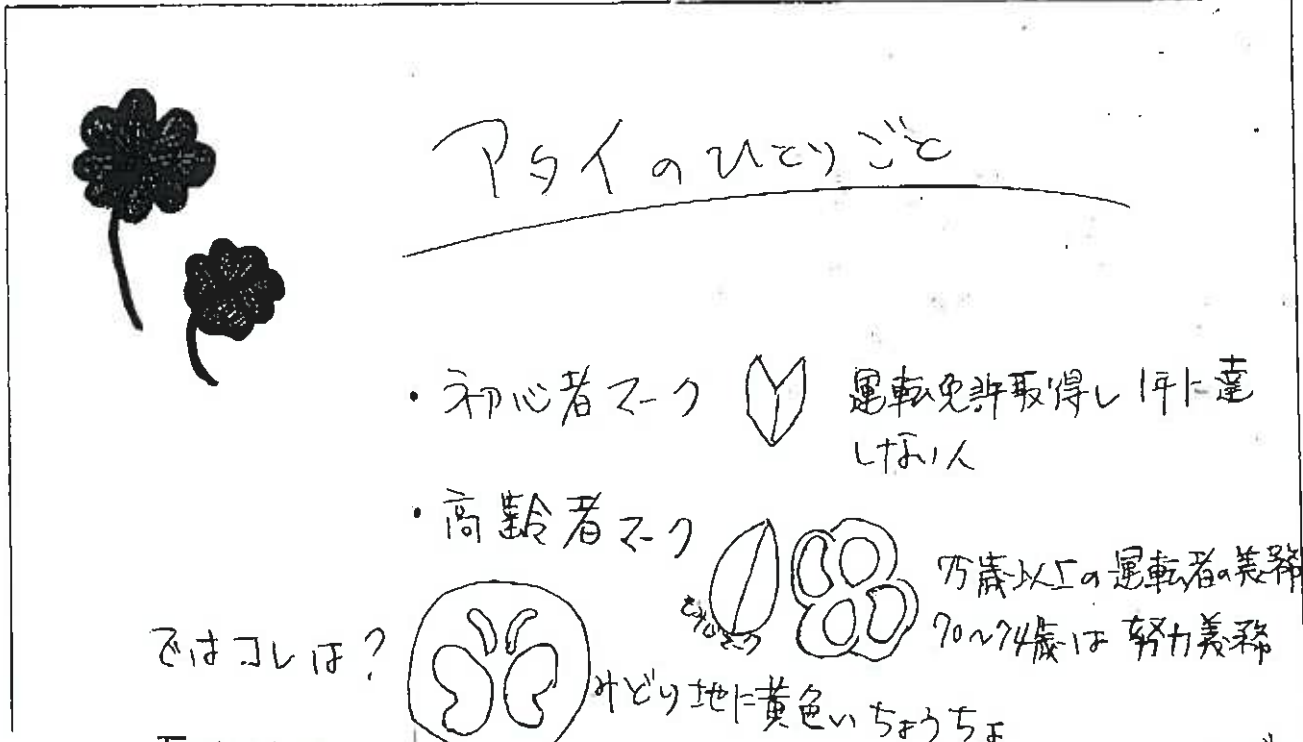 アタイのひとりごと
・初心者マーク 運転免許取得し1年に達
しない人
・高齢者マーク
75歳以上の運転者の義務
70〜74歳は努力義務
ではコレは?
みどり地に黄色いちょうちょ